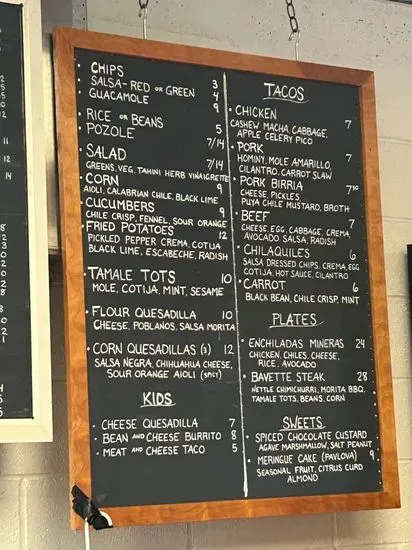 CHIPS 3
SALSA- RED OR GREEN 4
GUACAMOLE 9
RICE OR BEANS 5
POZOLE 7/14
SALAD 7/14
GREENS, VEG, TAHINI HERB VINAIGRETTE
CORN 9
AIOLI, CALABRIAN CHILE, BLACK LIME
CUCUMBERS 9
CHILE CRISP, FENNEL, SOUR ORANGE
FRIED POTATOES 12
PICKLED PEPPER CREMA, COTIJA
BLACK LIME, ESCABECHE, RADISH
TAMALE TOTS 10
MOLE, COTIJA, MINT, SESAME
FLOUR QUESADILLA 10
CHEESE, POBLANOS, SALSA MORITA
CORN QUESADILLAS (3) 12
SALSA NEGRA, CHIHUAHUA CHEESE,
SOUR ORANGE AIOLI (SPICY)
KIDS
CHEESE QUESADILLA 7
BEAN AND CHEESE BURRITO 8
MEAT AND CHEESE TACO 5
TACOS
CHICKEN 7
CASHEW MACHA, CABBAGE,
APPLE CELERY PICO
PORK 7
HOMINY, MOLE AMARILLO,
CILANTRO, CARROT SLAW
PORK BIRRIA 7.50
CHEESE, PICKLES,
PUYA CHILE MUSTARD, BROTH
BEEF 7
CHEESE, EGG, CABBAGE, CREMA,
AVOCADO SALSA, RADISH
CHILAQUILES 6
SALSA DRESSED CHIPS, CREMA, EGG
COTIJA, HOT SAUCE, CILANTRO
CARROT 6
BLACK BEAN, CHILE CRISP, MINT
PLATES
ENCHILADAS MINERAS 24
CHICKEN, CHILES, CHEESE,
RICE, AVOCADO
BAVETTE STEAK 28
NETTLE CHIMICHURRI, MORITA BBQ,
TAMALE TOTS, BEANS, CORN
SWEETS
SPICED CHOCOLATE CUSTARD
AGAVE MARSHMALLOW, SALT PEANUT
MERINGUE CAKE (PAVLOVA) 9
SEASONAL FRUIT, CITRUS CURD
ALMOND